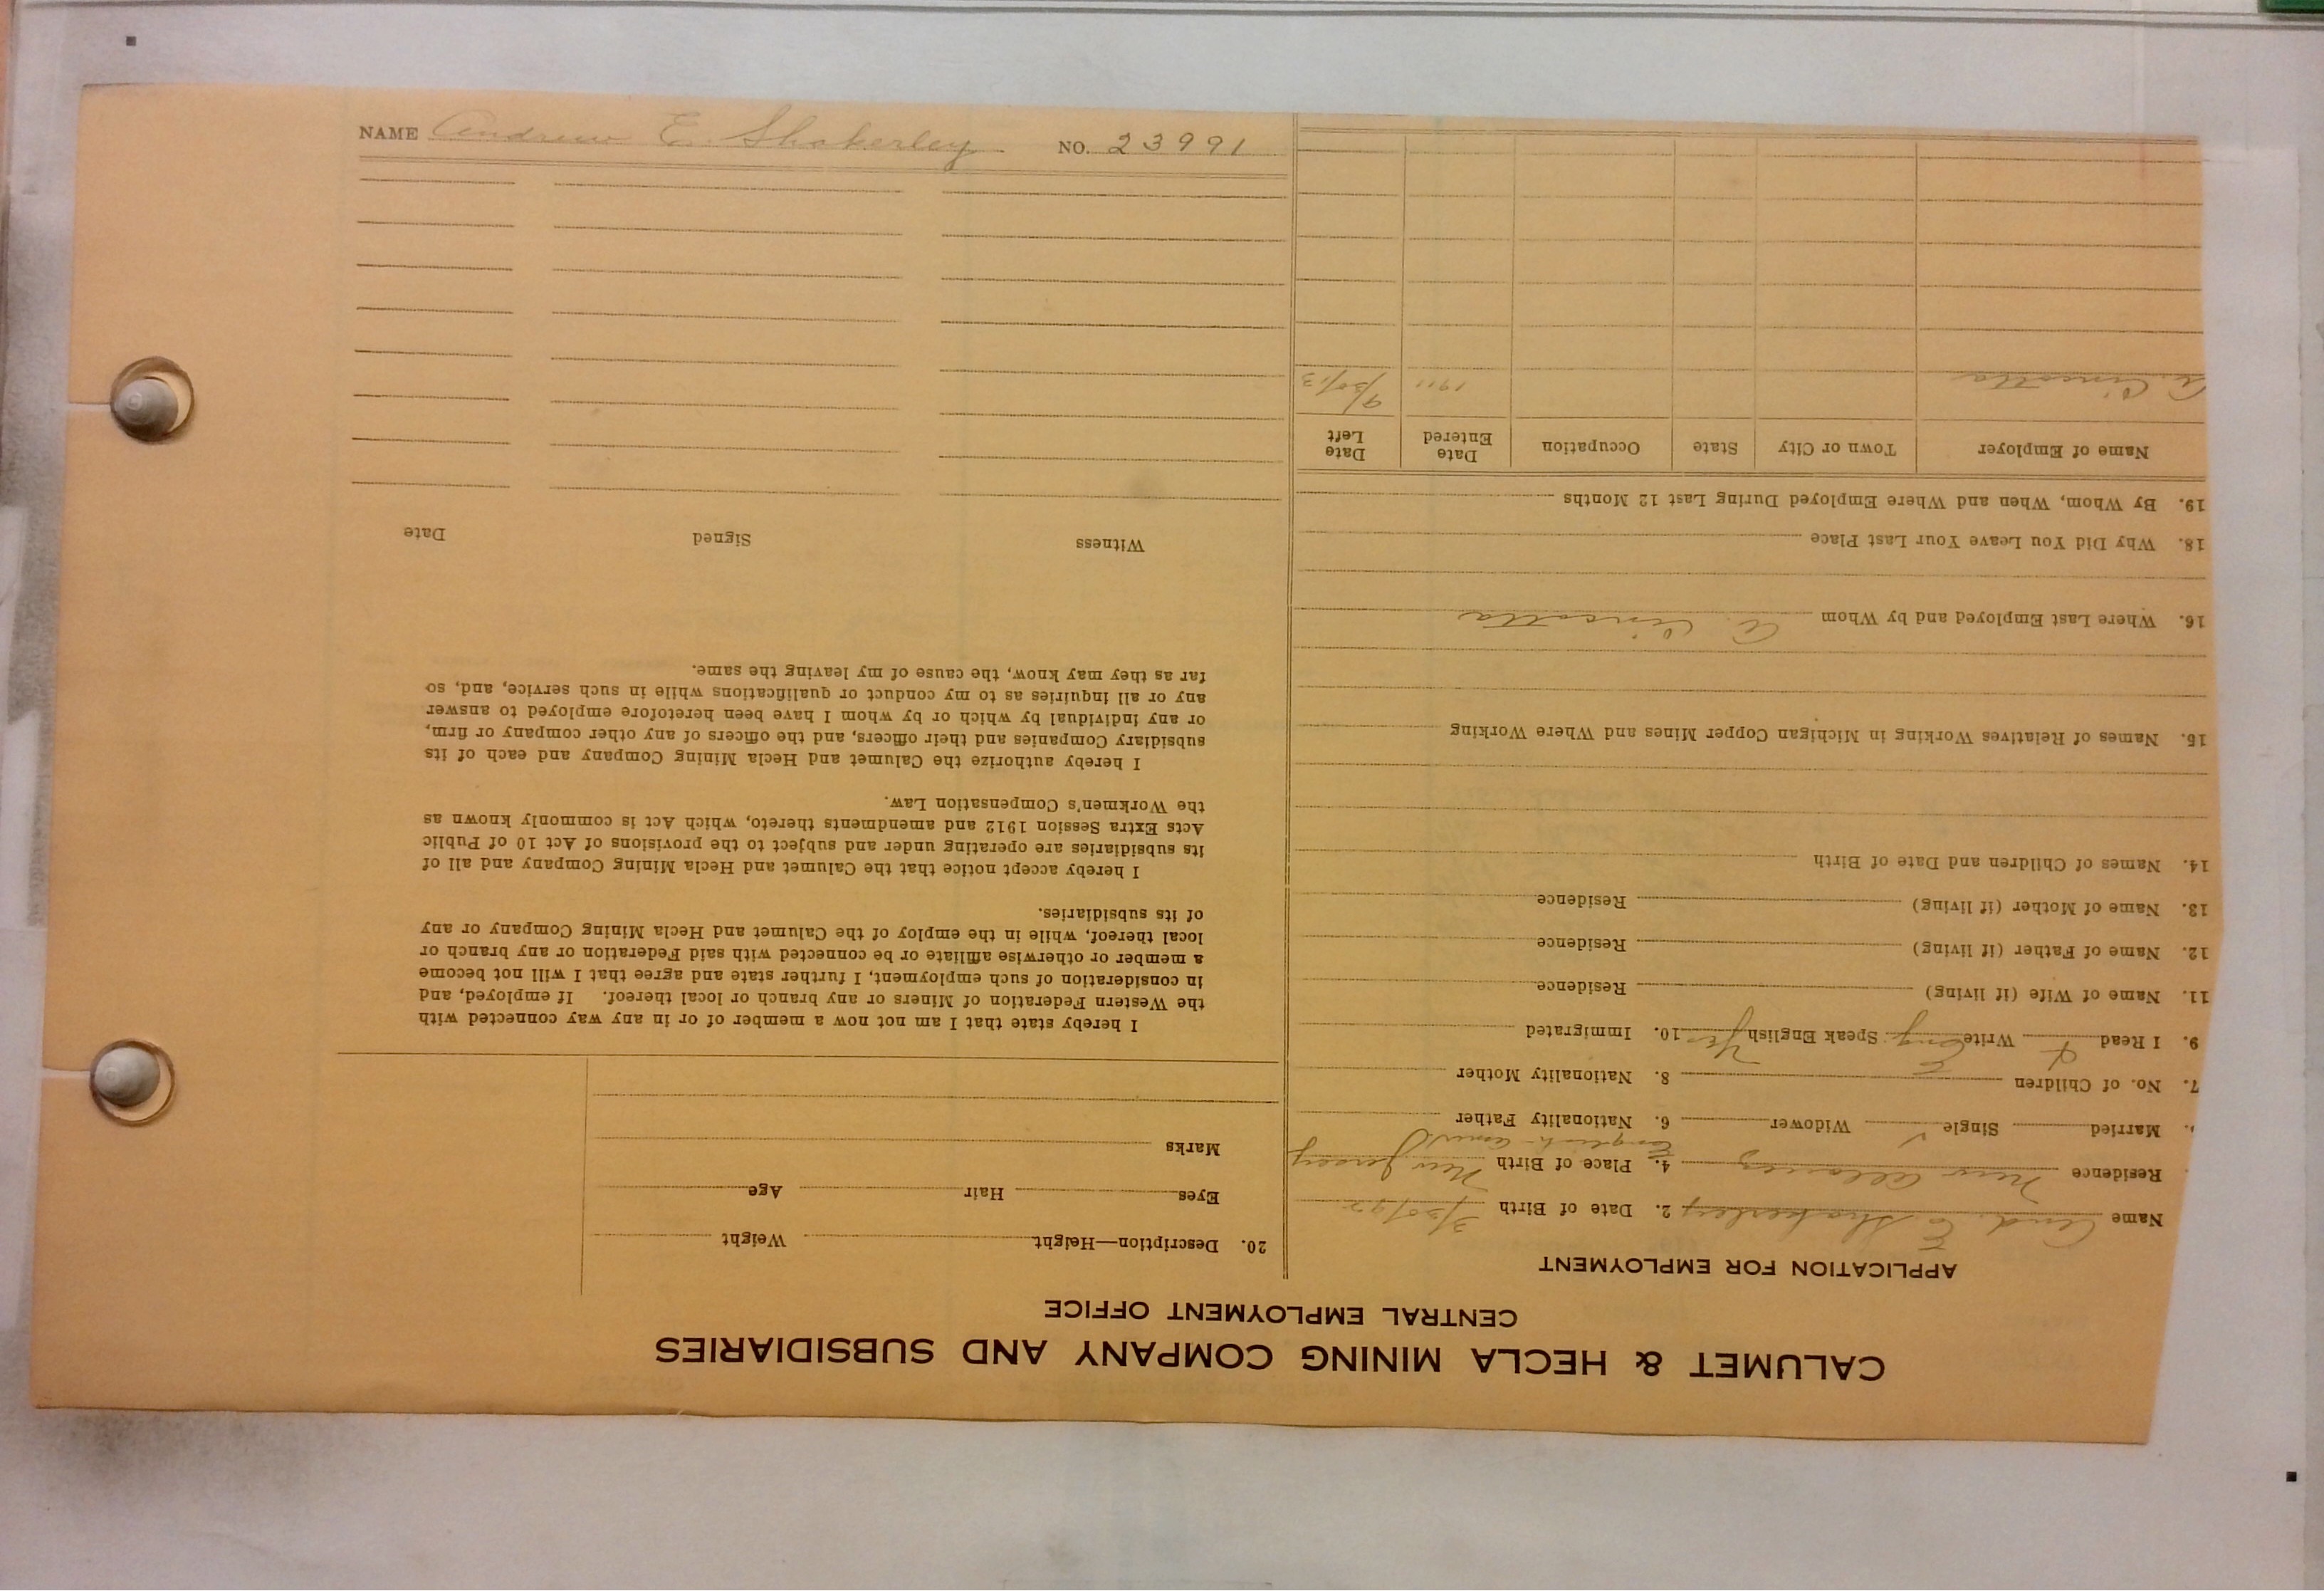 NAME Andrew E. Shakerley NO. 23991
CALUMET & HECLA MINING COMPANY AND SUBSIDIARIES
CENTRAL EMPLOYMENT OFFICE
APPLICATION FOR EMPLOYMENT
Name And. E Shakerley 2. Date of Birth 3/30/92
Residence New Albany 4. Place of Birth New Jersey
Married Single ✓ Widower 6. Nationality Father English
7. No. of Children 8. Nationality Mother
9. I Read Write Eng. Speak English Yes 10. Immigrated
11. Name of Wife (if living) Residence
12. Name of Father (if living) Residence
13. Name of Mother (if living) Residence
14. Names of Children and Date of Birth
15. Names of Relatives Working in Michigan Copper Mines and Where Working
16. Where Last Employed and by Whom
18. Why Did You Leave Your Last Place
19. By Whom, When and Where Employed During Last 12 Months
Name of Employer Town or City State Occupation Date Entered Date Left
1911 9/30/13
20. Description—Height Weight
Eyes Hair Age
Marks
I hereby state that I am not now a member of or in any way connected with
the Western Federation of Miners or any branch or local thereof. If employed, and
in consideration of such employment, I further state and agree that I will not become
a member or otherwise affiliate or be connected with said Federation or any branch or
local thereof, while in the employ of the Calumet and Hecla Mining Company or any
of its subsidiaries.
I hereby accept notice that the Calumet and Hecla Mining Company and all of
its subsidiaries are operating under and subject to the provisions of Act 10 of Public
Acts Extra Session 1912 and amendments thereto, which Act is commonly known as
the Workmen's Compensation Law.
I hereby authorize the Calumet and Hecla Mining Company and each of its
subsidiary Companies and their officers, and the officers of any other company or firm,
or any individual by which or by whom I have been heretofore employed to answer
any or all inquiries as to my conduct or qualifications while in such service, and, so
far as they may know, the cause of my leaving the same.
Witness Signed Date